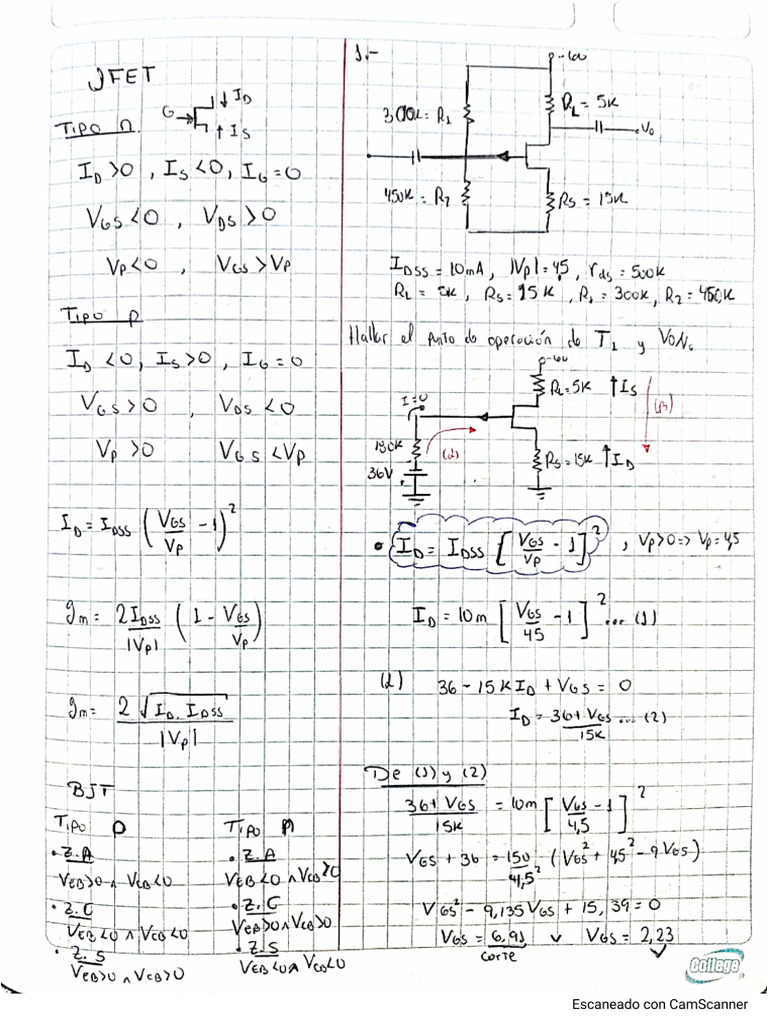 JFET
G I_D
I_S
TIPO n
I_D >0 , I_S <0, I_G = 0
V_GS <0 , V_DS >0
V_P <0 , V_GS > V_P
TIPO p
I_D <0, I_S >0 , I_G = 0
V_GS > 0 , V_DS <0
V_P >0 V_GS < V_P
I_D = I_DSS (V_GS/V_P - 1)^2
g_m = 2I_DSS/|V_P| (1 - V_GS/V_P)
g_m = 2√(I_D . I_DSS)/|V_P|
BJT
TIPO p
• Z.A
V_EB>0 ∧ V_CB<0
• Z.C
V_EB<0 ∧ V_CB<0
• Z.S
V_EB>0 ∧ V_CB>0
TIPO n
• Z.A
V_EB<0 ∧ V_CB>0
• Z.C
V_EB>0 ∧ V_CB>0
• Z.S
V_EB<0 ∧ V_CB<0
1.-
-60
R_L = 5K
300K = R_1
V_0
450K = R_2
R_S = 15K
I_DSS = 10mA, |V_P| = 4,5, r_ds = 500K
R_L = 5K , R_S = 15K , R_1 = 300K, R_2 = 450K
Hallar el punto de operación de T_1 y
-60
R_L = 5K ↑I_S
I=0
(β)
180K
(α)
36V
R_S = 15K ↑I_D
• I_D = I_DSS [V_GS/V_P - 1]^2 , V_P>0 => V_P = 4,5
I_D = 10m [V_GS/45 - 1]^2 ... (1)
(α) 36 - 15K I_D + V_GS = 0
I_D = 36 + V_GS/15K ... (2)
De (1) y (2)
36 + V_GS/15K = 10m [V_GS/4,5 - 1]^2
V_GS + 36 = 150/4,5^2 (V_GS^2 + 4,5^2 - 9V_GS)
V_GS^2 - 9,135V_GS + 15,39 = 0
V_GS = 6,91 ∨ V_GS = 2,23
corte ✓
College
Escaneado con CamScanner